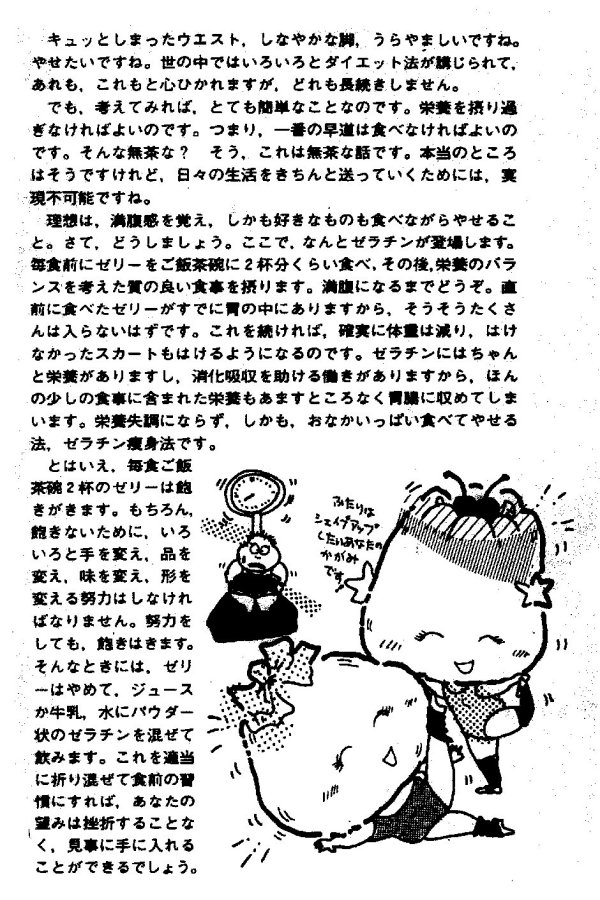 キュッとしまったウエスト，しなやかな脚，うらやましいですね。
やせたいですね。世の中ではいろいろとダイエット法が講じられて，
あれも，これもと心ひかれますが，どれも長続きしません。
でも，考えてみれば，とても簡単なことなのです。栄養を摂り過
ぎなければよいのです。つまり，一番の早道は食べなければよいの
です。そんな無茶な？　そう，これは無茶な話です。本当のところ
はそうですけれど，日々の生活をきちんと送っていくためには，実
現不可能ですね。
理想は，満腹感を覚え，しかも好きなものも食べながらやせるこ
と。さて，どうしましょう。ここで，なんとゼラチンが登場します。
毎食前にゼリーをご飯茶碗に２杯分くらい食べ，その後，栄養のバラ
ンスを考えた質の良い食事を摂ります。満腹になるまでどうぞ。直
前に食べたゼリーがすでに胃の中にありますから，そうそうたくさ
んは入らないはずです。これを続ければ，確実に体重は減り，はけ
なかったスカートもはけるようになるのです。ゼラチンにはちゃん
と栄養がありますし，消化吸収を助ける働きがありますから，ほん
の少しの食事に含まれた栄養もあますところなく胃腸に収めてしま
います。栄養失調にならず，しかも，おなかいっぱい食べてやせる
法，ゼラチン痩身法です。
とはいえ，毎食ご飯
茶碗２杯のゼリーは飽
きがきます。もちろん，
飽きないために，いろ
いろと手を変え，品を
変え，味を変え，形を
変える努力はしなけれ
ばなりません。努力を
しても，飽きはきます。
そんなときには，ゼリ
ーはやめて，ジュース
か牛乳，水にパウダー
状のゼラチンを混ぜて
飲みます。これを適当
に折り混ぜて食前の習
慣にすれば，あなたの
望みは挫折することな
く，見事に手に入れる
ことができるでしょう。
ふたりは
シェイプアップ
したいあなたの
かがみ
です